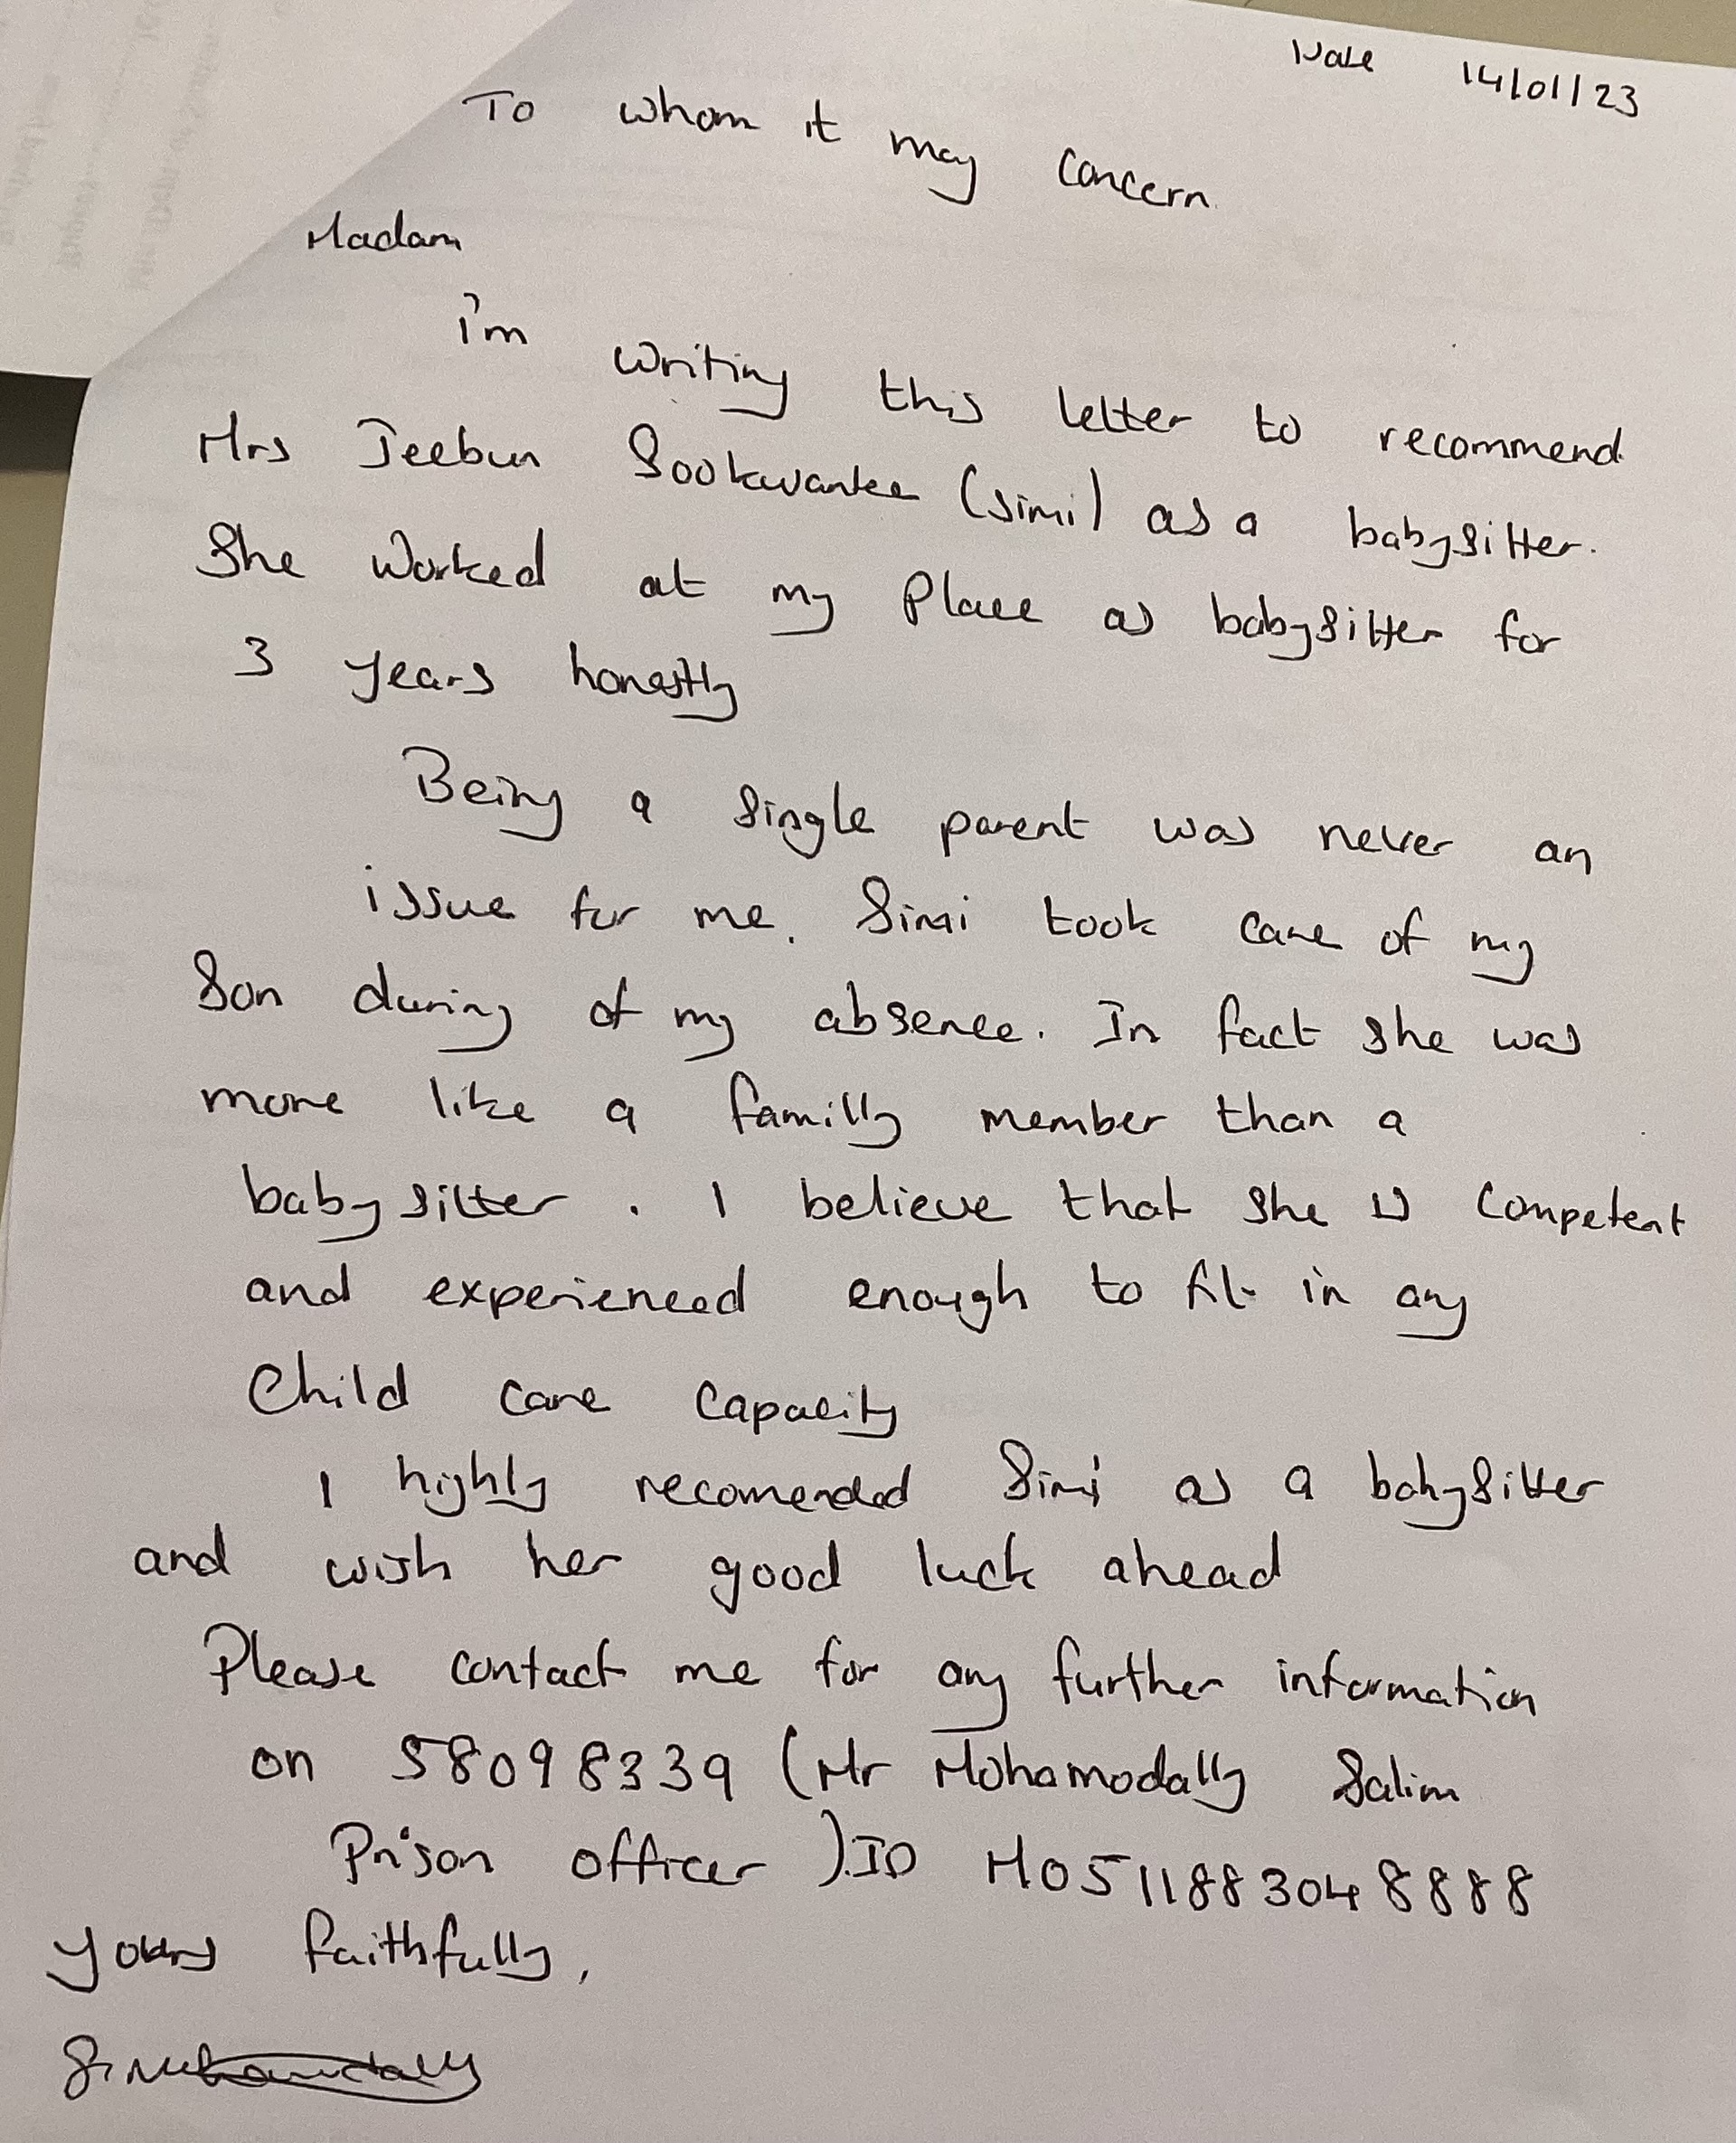 Date 14/01/23
To whom it may concern
Madam
i'm writing this letter to recommend
Mrs Jeebun Sookwantee (Simi) as a babysitter.
She worked at my Place as babysitter for
3 years honestly
Being a single parent was never an
issue for me. Simi took care of my
Son during of my absence. In fact she was
more like a familly member than a
babysitter. I believe that she is competent
and experienced enough to fit in any
Child care capacity
I highly recomended Simi as a babysitter
and wish her good luck ahead
Please contact me for any further information
on 58098339 (Mr Mohamodally Salim
Prison officer ).ID M0511883048888
Yours faithfully,